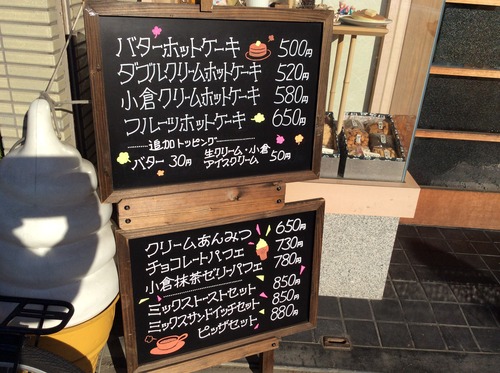 バターホットケーキ 500円
ダブルクリームホットケーキ 520円
小倉クリームホットケーキ 580円
フルーツホットケーキ 650円
追加トッピング
バター 30円 生クリーム・小倉 アイスクリーム 50円
クリームあんみつ 650円
チョコレートパフェ 730円
小倉抹茶ゼリーパフェ 780円
ミックストーストセット 850円
ミックスサンドイッチセット 850円
ピッザセット 880円